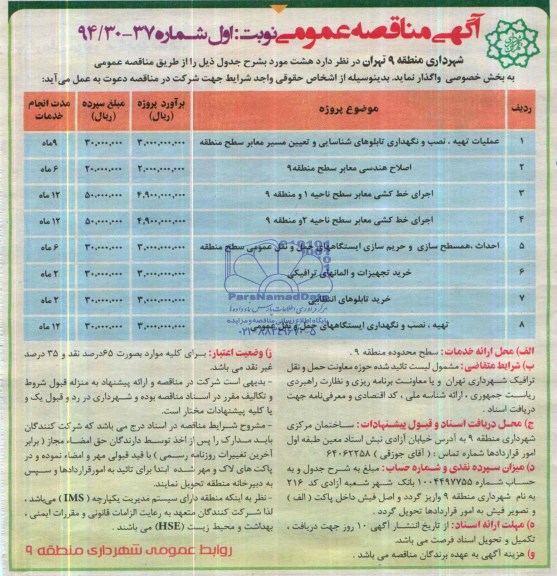 آگهی مناقصه عمومی نوبت: اول شماره ۳۷-۹۴/۳۰
شهرداری منطقه ۹ تهران در نظر دارد هشت مورد بشرح جدول ذیل را از طریق مناقصه عمومی
به بخش خصوصی واگذار نماید. بدینوسیله از اشخاص حقوقی واجد شرایط جهت شرکت در مناقصه دعوت به عمل می‌آید:
ردیف موضوع پروژه برآورد پروژه (ریال) مبلغ سپرده (ریال) مدت انجام خدمات
۱ عملیات تهیه ، نصب و نگهداری تابلوهای شناسایی و تعیین مسیر معابر سطح منطقه ۳,۰۰۰,۰۰۰,۰۰۰ ۳۰,۰۰۰,۰۰۰ ۹ماه
۲ اصلاح هندسی معابر سطح منطقه۹ ۲,۰۰۰,۰۰۰,۰۰۰ ۲۰,۰۰۰,۰۰۰ ۶ ماه
۳ اجرای خط کشی معابر سطح ناحیه ۱ و منطقه ۹ ۴,۹۰۰,۰۰۰,۰۰۰ ۵۰,۰۰۰,۰۰۰ ۱۲ ماه
۴ اجرای خط کشی معابر سطح ناحیه ۲و منطقه ۹ ۴,۹۰۰,۰۰۰,۰۰۰ ۵۰,۰۰۰,۰۰۰ ۱۲ ماه
۵ احداث ،همسطح سازی و حریم سازی ایستگاههای حمل و نقل عمومی سطح منطقه ۳,۰۰۰,۰۰۰,۰۰۰ ۳۰,۰۰۰,۰۰۰ ۶ ماه
۶ خرید تجهیزات و المانهای ترافیکی ۳,۰۰۰,۰۰۰,۰۰۰ ۳۰,۰۰۰,۰۰۰ ۲ ماه
۷ خرید تابلوهای انتظامی ۳,۰۰۰,۰۰۰,۰۰۰ ۳۰,۰۰۰,۰۰۰ ۲ ماه
۸ تهیه ، نصب و نگهداری ایستگاههای حمل و نقل عمومی ۳,۰۰۰,۰۰۰,۰۰۰ ۳۰,۰۰۰,۰۰۰ ۱۲ ماه
ParsNamadData
پایگاه اطلاع رسانی مناقصه و مزایده
۰۲۱-۸۸۳۴۹۶۷۰-۵
الف) محل ارائه خدمات : سطح محدوده منطقه ۹ .
ب) شرایط متقاضی: مشمول لیست تائید شده حوزه معاونت حمل و نقل
ترافیک شهرداری تهران و یا معاونت برنامه ریزی و نظارت راهبردی
ریاست جمهوری ، ارائه شناسه ملی ، کد اقتصادی و معرفی‌نامه جهت
دریافت اسناد .
ج) محل دریافت اسناد و قبول پیشنهادات : ساختمان مرکزی
شهرداری منطقه ۹ به آدرس خیابان آزادی نبش استاد معین طبقه اول
امور قراردادها شماره تماس : ( آقای جوزقی ) ۶۴۰۶۲۲۵۸
د) میزان سپرده نقدی و شماره حساب: مبلغ به شرح جدول و به
حساب شماره ۱۰۰۴۴۹۷۷۵۵ بانک شهر شعبه آزادی کد ۲۱۶
به نام شهرداری منطقه ۹ واریز گردد و اصل فیش داخل پاکت ( الف )
و تصویر فیش به امور قراردادها تحویل گردد .
ه) مهلت ارائه اسناد: از تاریخ انتشار آگهی ۱۰ روز جهت دریافت ،
تکمیل و تحویل اسناد فرصت می باشد.
و) هزینه آگهی به عهده برندگان مناقصه می باشد .
ز) وضعیت اعتبار: برای کلیه موارد بصورت ۶۵درصد نقد و ۳۵ درصد
غیر نقد می باشد.
- بدیهی است شرکت در مناقصه و ارائه پیشنهاد به منزله قبول شروط
و تکالیف مقرر در اسناد مناقصه بوده و شهرداری در رد و قبول یک و
یا کلیه پیشنهادات مختار است.
- مشروح شرایط مناقصه در اسناد درج می باشد که شرکت کنندگان
باید مدارک را پس از اخذ توسط دارندگان حق امضاء مجاز ( برابر
آخرین تغییرات روزنامه رسمی ) با قید قبولی مهر و امضاء نموده و در
پاکت های لاک و مهر شده ابتدا برای تائید به امورقراردادها و سپس
به دبیرخانه منطقه تحویل نمایند.
- نظر به اینکه منطقه دارای سیستم مدیریت یکپارچه ( IMS ) می‌باشد ،
لذا شرکت کنندگان متعهد به رعایت الزامات قانونی و مقررات ایمنی ،
بهداشت و محیط زیست (HSE) می باشند .
روابط عمومی شهرداری منطقه ۹